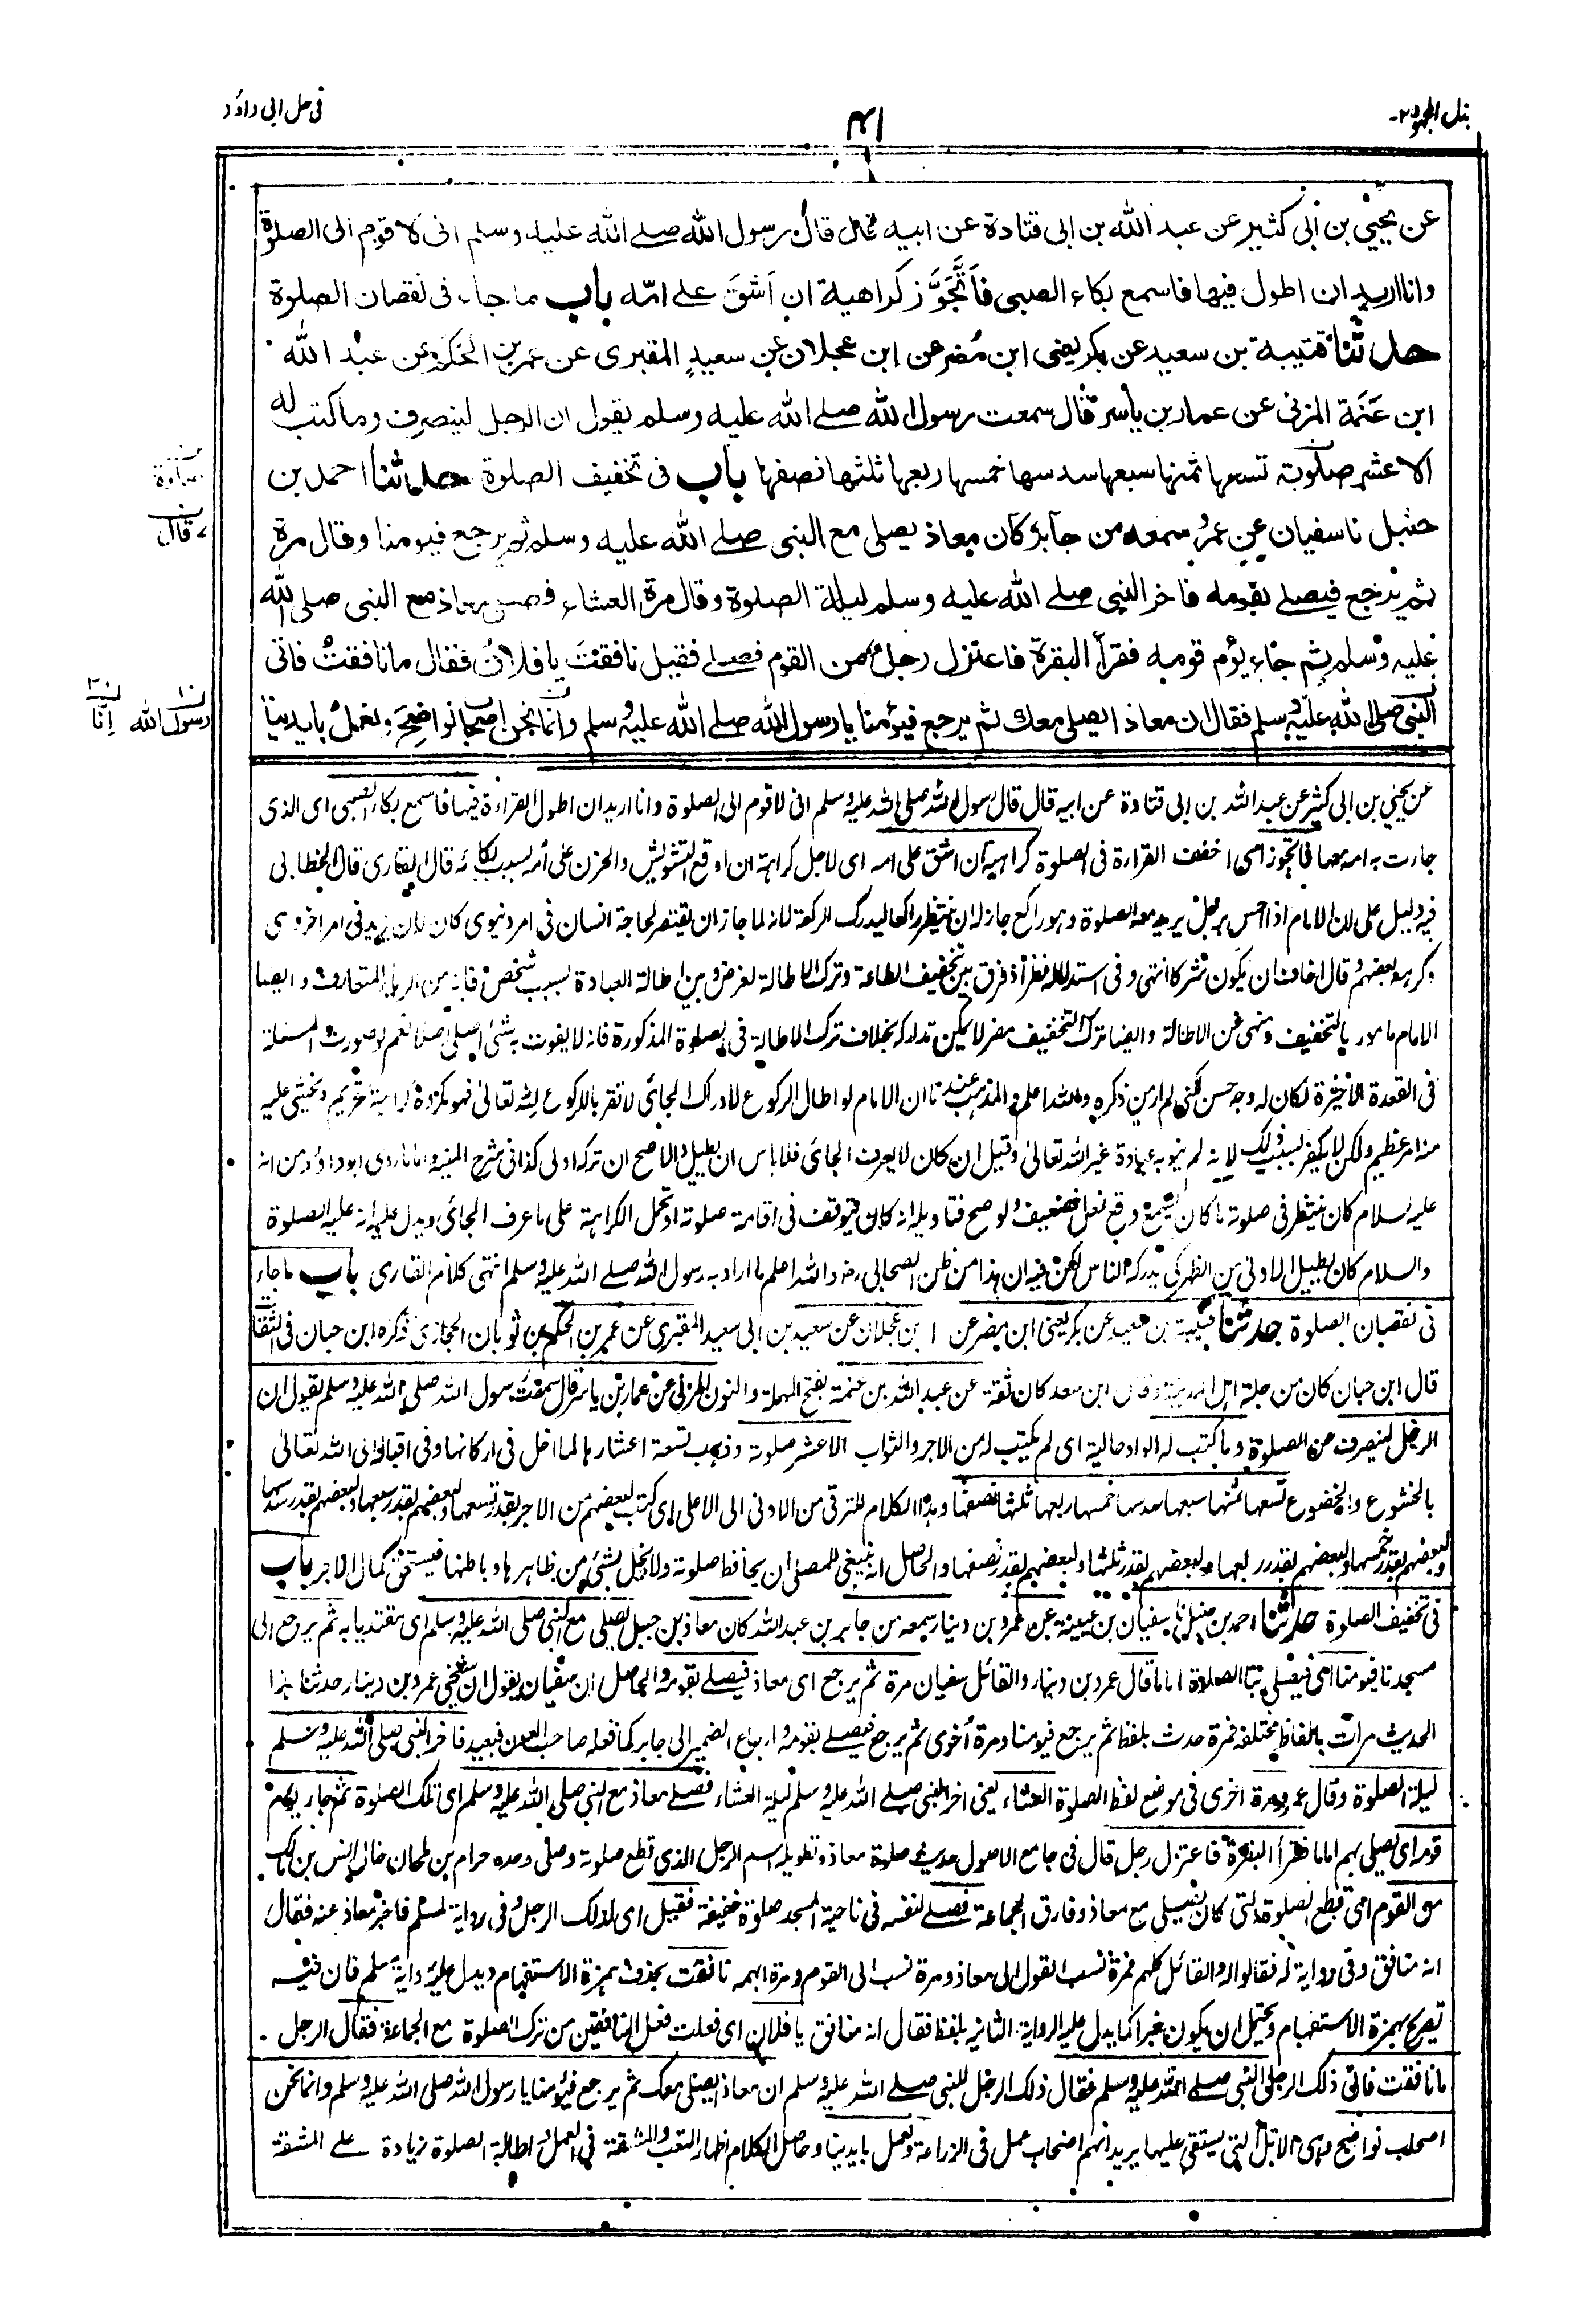 بذل المجهود ٢-
٤١
في حل ابي داؤد
عن يحيى بن ابى كثير عن عبد الله بن ابى قتادة عن ابيه قال قال رسول الله صلے الله عليه وسلم انى لاقوم الى الصلوة
وانا اريد ان اطول فيها فاسمع بكاء الصبى فَاَتَجَوَّز كراهية ان اَشقَ على امّه باب ما جاء فى نقصان الصلوة
حدثنا قتيبة بن سعيد عن بكر يعنى ابن مُضر عن ابن عجلان عن سعيدٍ المقبرى عن عمر بن الحكم عن عبد الله
ابن عَنَمَة المزنى عن عمار بن ياسر قال سمعت رسول الله صلے الله عليه وسلم يقول ان الرجل لينصرف وما كتب له
الا عشر صلوته تسعها ثمنها سبعها سدسها خمسها ربعها ثلثها نصفها باب فى تخفيف الصلوة حدثنا احمد بن
حنبل نا سفيان عن عمرو سمعه من جابر كان معاذ يصلى مع النبى صلے الله عليه وسلم ثم يرجع فيؤمنا وقال مرة
ثم يرجع فيصلے بقومه فاخر النبى صلے الله عليه وسلم ليلة الصلوة وقال مرة العشاء فصلى معاذ مع النبى صلى الله
عليه وسلم ثم جاء يؤم قومه فقرأ البقرة فاعتزل رجل من القوم فصلے فقيل نافقتَ يا فلانُ فقال ما نافقتُ فاتى
النبى صلى الله عليه وسلم فقال ان معاذا يصلى معك ثم يرجع فيؤمنا يا رسول الله صلے الله عليه وسلم وانما نحن اصحاب نواضح ونعمل بايدينا
قال
رسول الله
اِنَّا
عن يحيى بن ابى كثير عن عبد الله بن ابى قتادة عن ابيه قال قال رسول الله صلى الله عليه وسلم انى لاقوم الى الصلوة وانا اريد ان اطول القراءة فيها فاسمع بكاء الصبى اى الذى
جاءت به امه معها فاتجوز اى اخفف القراءة فى الصلوة كراهية ان اشق على امه اى لاجل كراهة ان اوقع التشويش والحزن على أمه بسبب بكائه قال القارى قال الخطابى
فيه دليل على ان الامام اذا احس برجل يريد معه الصلوة وهو راكع جاز له ان ينتظر راكعا ليدرك الركعة لانه لما جاز ان يقتصر لحاجة انسان فى امر دنيوى كان لان يزيد فى امر اخروى
وكرهه بعضهم وقال اخاف ان يكون شركا انتهى وفى استدلاله نظر اذ فرق بين تخفيف الطاعة وترك الاطالة لغرض وبين اطالة العبادة بسبب شخص فانه من الرياء المتعارف وايضا
الامام مامور بالتخفيف ومنهى عن الاطالة وايضا ترك التخفيف مضر لا يمكن تداركه بخلاف ترك الاطالة فى الصلوة المذكورة فانه لا يفوت به شئ اصلى اصلا نعم لو صورت المسئلة
فى القعدة الاخيرة لكان له وجه حسن لكنى لم ار من ذكره والله اعلم والمذهب عندنا ان الامام لو اطال الركوع لادراك الجائى لا تقربا بالركوع لله تعالى فهو مكروه كراهة تحريم ويخشى عليه
منه امر عظيم ولكن لا يكفر بسبب ذلك لانه لم ينو به عبادة غير الله تعالى وقيل ان كان لا يعرف الجائى فلا باس ان يطيل والاصح ان تركه اولى كذا فى شرح المنية واما ما روى ابو داؤد من انه
عليه السلام كان ينتظر فى صلوته ما كان يسمع وقع نعل فضعيف ولو صح فتاويله انه كان يتوقف فى اقامة صلوته او تحمل الكراهة على ما عرف الجائى ويدل عليه انه عليه الصلوة
والسلام كان يطيل الاولى من الظهر كى يدركه الناس لكن فيه ان هذا من ظن الصحابى رضـ والله اعلم ما اراد به رسول الله صلے الله عليه وسلم انتهى كلام القارى باب ما جاء
فى نقصان الصلوة حدثنا قتيبة بن سعيد عن بكر يعنى ابن مضر عن ابن عجلان عن سعيد بن ابى سعيد المقبرى عن عمر بن الحكم بن ثوبان الحجازى ذكره ابن حبان فى الثقات
قال ابن حبان كان من جلة اهل المدينة وقال ابن سعد كان ثقة عن عبد الله بن عنمة بفتح المهملة والنون المزنى عن عمار بن ياسر قال سمعت رسول الله صلى الله عليه وسلم يقول ان
الرجل لينصرف من الصلوة وما كتب له الواو حالية اى لم يكتب له من الاجر والثواب الا عشر صلوته وذهب تسعة اعشارها لما اخل فى اركانها وفى اقباله الى الله تعالى
بالخشوع والخضوع تسعها ثمنها سبعها سدسها خمسها ربعها ثلثها نصفها وهذا الكلام للترقى من الادنى الى الاعلى اى كتب لبعضهم من الاجر بقدر تسعها ولبعضهم بقدر سبعها ولبعضهم بقدر سدسها
ولبعضهم بقدر خمسها ولبعضهم بقدر ربعها ولبعضهم بقدر ثلثها ولبعضهم بقدر نصفها والحاصل انه ينبغى للمصلى ان يحافظ صلوته ولا يخل بشئ من ظاهرها وباطنها فيستحق كمال الاجر باب
فى تخفيف الصلوة حدثنا احمد بن حنبل نا سفيان بن عيينة عن عمرو بن دينار سمعه من جابر بن عبد الله كان معاذ بن جبل يصلى مع النبى صلى الله عليه وسلم اى مقتديا به ثم يرجع الى
مسجدنا فيؤمنا اى فيصلى بنا الصلوة اماما قال عمرو بن دينار والقائل سفيان مرة ثم يرجع اى معاذ فيصلے بقومه والحاصل ان سفيان يقول ان شيخى عمرو بن دينار حدثنا هذا
الحديث مرات بالفاظ مختلفة فمرة حدث بلفظ ثم يرجع فيؤمنا ومرة أخرى ثم يرجع فيصلے بقومه وارجاع الضمير الى جابر كما فعله صاحب العون فبعيد فاخر النبى صلى الله عليه وسلم
ليلة الصلوة وقال عمرو مرة اخرى فى موضع لفظ الصلوة العشاء يعنى اخر النبى صلے الله عليه وسلم ليلة العشاء فصلے معاذ مع النبى صلى الله عليه وسلم اى تلك الصلوة ثم جاء يؤم
قومه اى يصلى بهم اماما فقرأ البقرة فاعتزل رجل قال فى جامع الاصول حديث صلوة معاذ وتطويله اسم الرجل الذى قطع صلوته وصلى وحده حرام بن ملحان خال انس بن مالك
من القوم اى قطع الصلوة التى كان يصلى مع معاذ وفارق الجماعة فصلے لنفسه فى ناحية المسجد صلوة خفيفة فقيل اى لذلك الرجل وفى رواية لمسلم فاخبر معاذ عنه فقال
انه منافق وفى رواية له فقالوا له والقائل كلهم فمرة نسب القول الى معاذ ومرة نسب الى القوم ومرة ابهمه نافقت بحذف همزة الاستفهام ويدل عليه رواية مسلم فان فيه
تصريح بهمزة الاستفهام ويحتمل ان يكون خبرا كما يدل عليه الرواية الثانية بلفظ فقال انه منافق يا فلان اى فعلت فعل المنافقين من ترك الصلوة مع الجماعة فقال الرجل
ما نافقت فاتى ذلك الرجل النبى صلے الله عليه وسلم فقال ذلك الرجل للنبى صلے الله عليه وسلم ان معاذا يصلى معك ثم يرجع فيؤمنا يا رسول الله صلى الله عليه وسلم وانما نحن
اصحاب نواضح وهى الابل التى يستقى عليها يريد انهم اصحاب عمل فى الزراعة ونعمل بايدينا وحاصل الكلام اظهار التعب والمشقة فى العمل واطالة الصلوة زيادة على المشقة